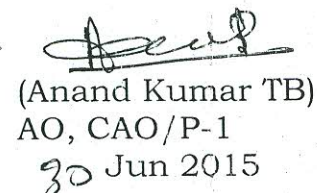 (Anand Kumar TB)
AO, CAO/P-1
30 Jun 2015